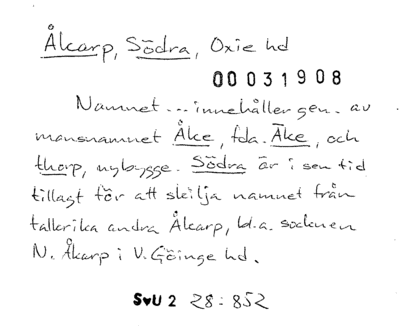 Åkarp, Södra, Oxie hd
00031908
Namnet ... innehåller gen. av
mansnamnet Åke, fda. Āke, och
thorp, nybygge. Södra är i sen tid
tillagt för att skilja namnet från
talrika andra Åkarp, bl.a. socknen
N. Åkarp i V. Göinge hd.
SvU 2 28:852